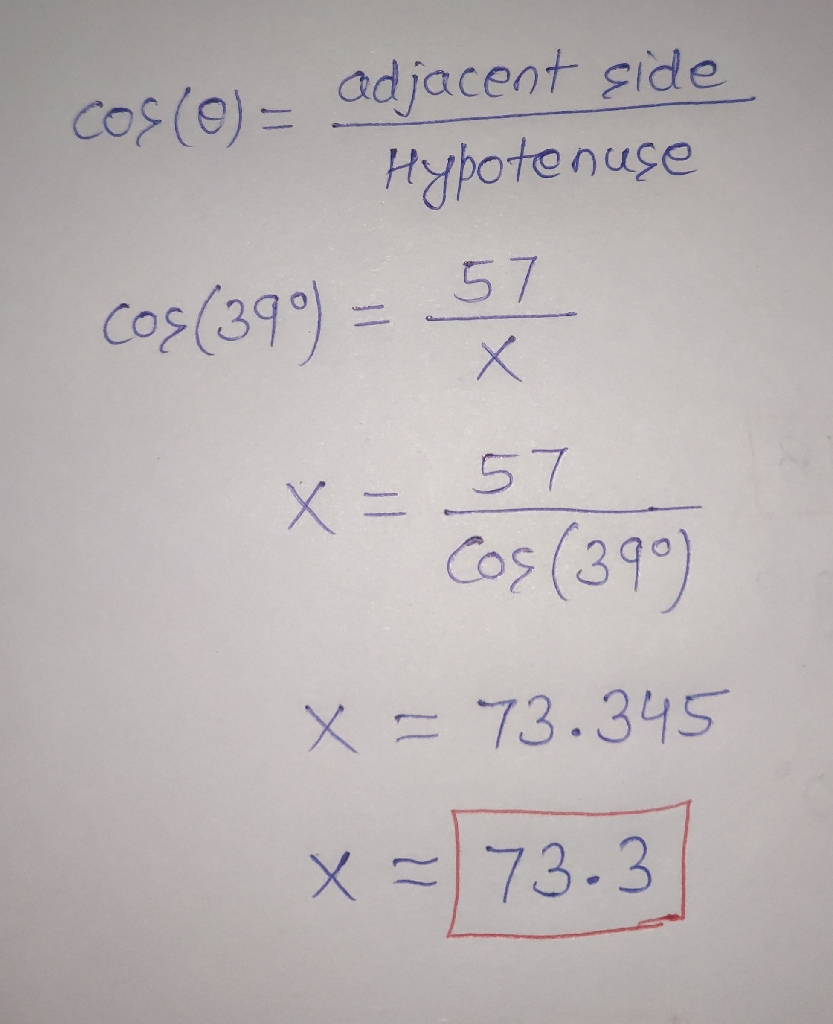 cos(θ) = adjacent side / Hypotenuse
cos(39°) = 57 / x
x = 57 / Cos(39°)
x = 73.345
x ≈ 73.3